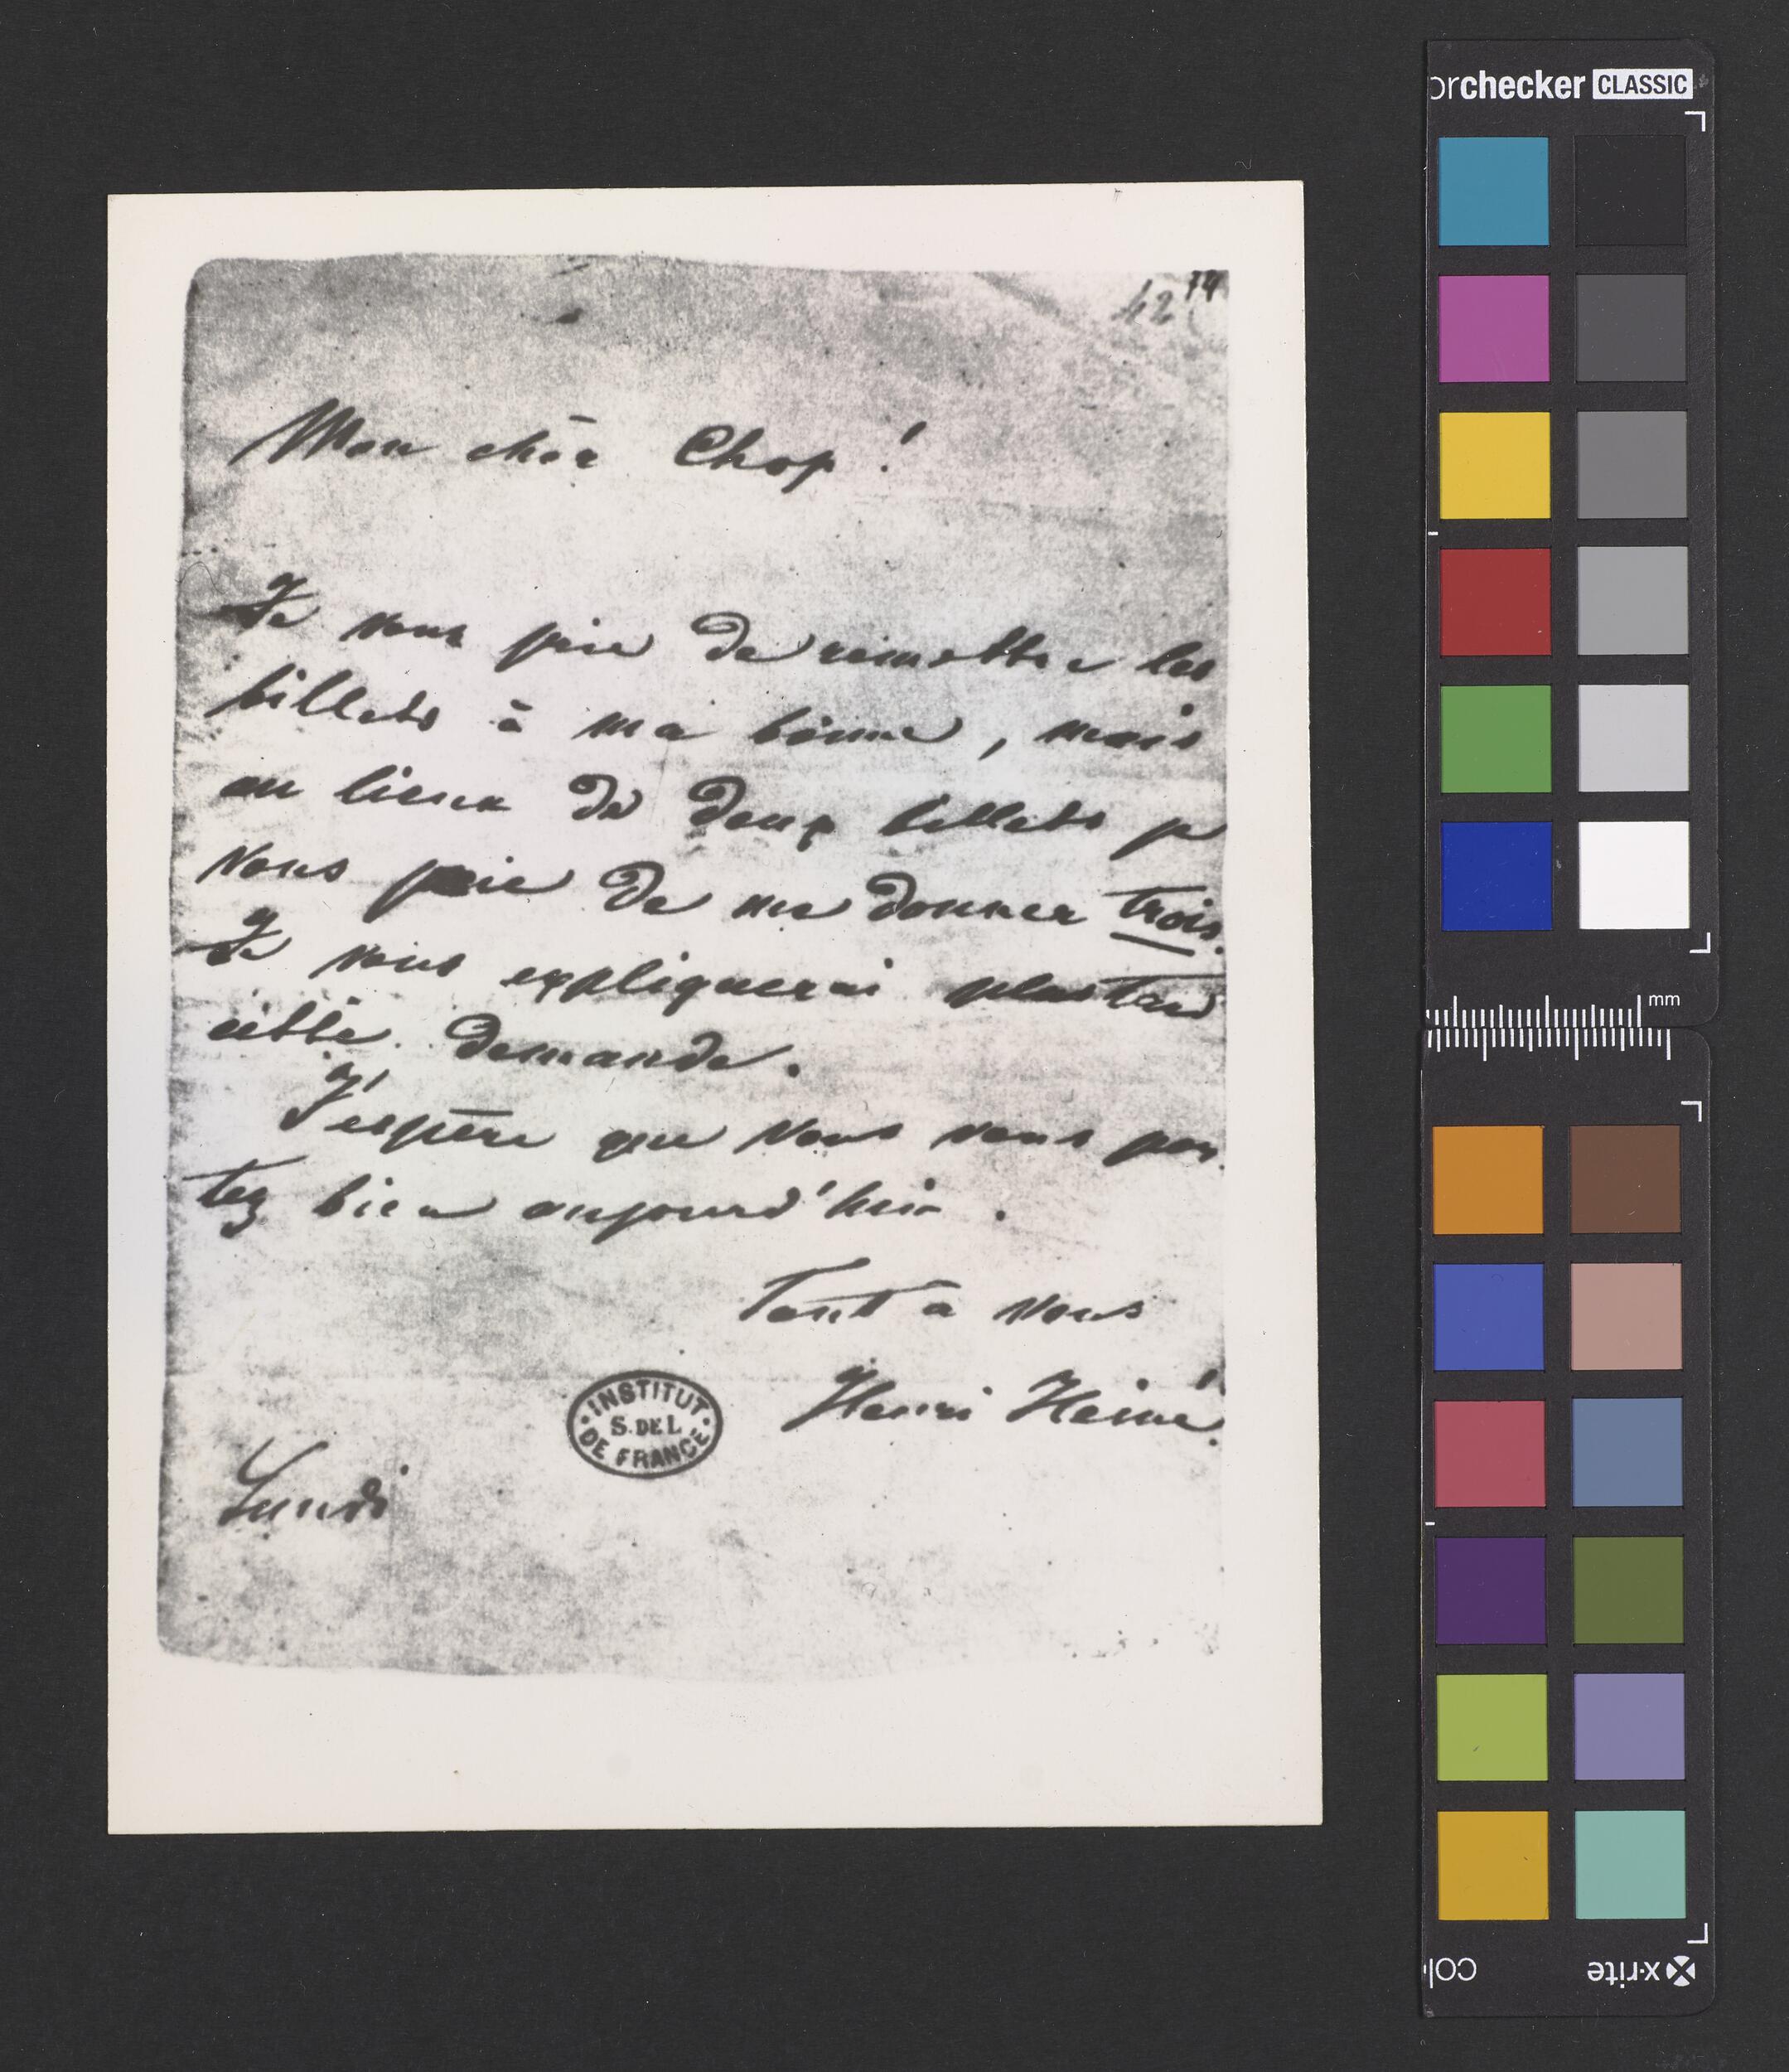 42 74
Mon chèr Chop !
Je vous prie de remettre les
billets à ma bonne, mais
au lieux de deux billets je
vous prie de me donner trois.
Je vous expliquerai plus tard
cette demande.
J'espère que vous vous por
tez bien aujourd'hui.
Tout à vous
Henri Heiné.
INSTITUT
S. DE L
DE FRANCE
Lundi
orchecker CLASSIC
mm
col
x-rite